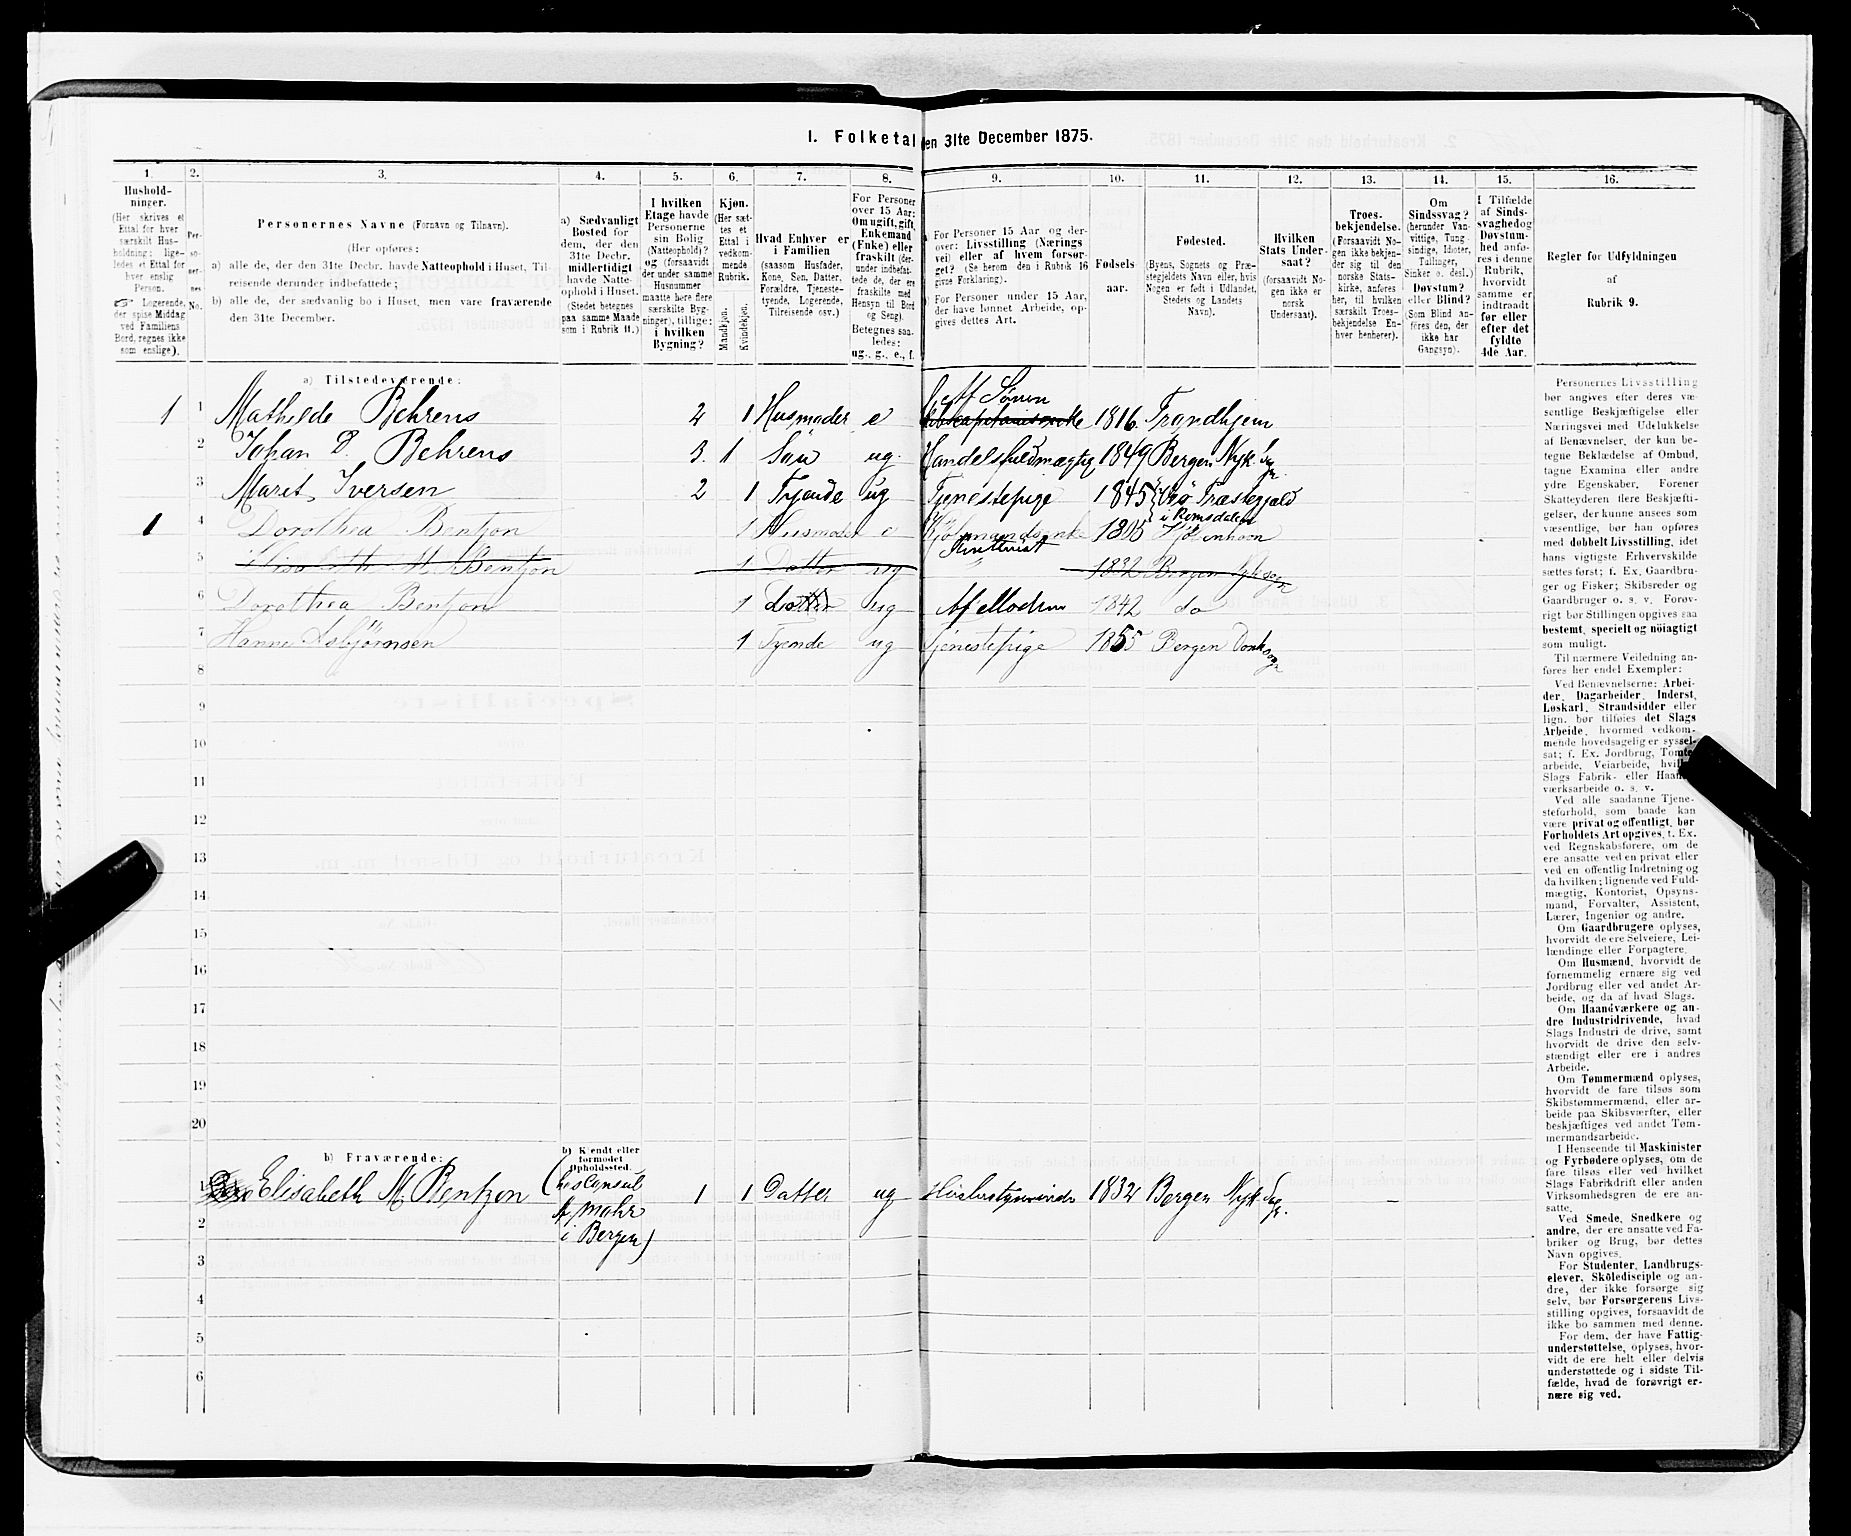 I. Folketal den 31te December 1875.
1. 2. 3. 4. 5. 6. 7. 8. 9. 10. 11. 12. 13. 14. 15. 16.
Hushold-
ninger.
(Her skrives et
Ettal for hver
særskilt Hus-
holdning; lige-
ledes et Ettal for
hver enslig
Person.
☞ Logerende,
der spise Middag
ved Familiens
Bord, regnes ikke
som enslige).
Per-
so-
ner-
nes
No.
Personernes Navne (Fornavn og Tilnavn).
(Her opføres:
a) alle de, der den 31te Decbr. havde Natteophold i Huset, Til-
reisende derunder indbefattede;
b) alle de, der sædvanlig bo i Huset, men vare fraværende
den 31te December.
a) Sædvanligt
Bosted for
dem, der den
31te Decbr.
midlertidigt
havde Natte-
ophold i Huset.
(Stedet betegnes
paa samme Maade
som i Rubrik 11.)
I hvilken
Etage havde
Personerne
sin Bolig
(Natteophold)?
og (forsaavidt
der under samme
Husnummer
maatte høre flere
særskilte Byg-
ninger), tillige:
i hvilken
Bygning?
Kjøn.
(Her sæt-
tes et
Ettal i
vedkom-
mende
Rubrik.
Mandkjøn.
Kvindekjøn.
Hvad Enhver er
i Familien
(saasom Husfader,
Kone, Søn, Datter,
Forældre, Tjeneste-
tyende, Logerende,
Tilreisende osv.)
For Personer
over 15 Aar:
Om ugift, gift,
Enkemand
(Enke) eller
fraskilt (der-
under indbefat-
tede de, der ere
fraskilte med
Hensyn til Bord
og Seng).
Betegnes saa-
ledes:
ug., g., e., f.
For Personer 15 Aar og der-
over: Livsstilling (Nærings-
vei) eller af hvem forsør-
get? (Se herom den i Rubrik 16
givne Forklaring).
For Personer under 15 Aar,
der have lønnet Arbeide, op-
gives dettes Art.
Fødsels-
aar.
Fødested.
(Byens, Sognets og Præ-
stegjeldets Navn eller, hvis
Nogen er født i Udlandet,
Stedets og Landets
Navn).
Hvilken
Stats Under-
saat?
(forsaavidt No-
gen ikke er
norsk
Undersaat).
Troes-
bekjendelse.
(Forsaavidt No-
gen ikke bekjen-
der sig til den
norske Stats-
kirke, anføres
her, til hvilken
særskilt Troes-
bekjendelse En-
hver henhører).
Om
Sindssvag?
(herunder Van-
vittige, Tung-
sindige, Idioter,
Tullinger,
Sinker o. desl.)
Døvstum?
eller Blind?
(Som Blind an-
føres den, der
ikke har
Gangsyn).
I Tilfælde
af Sinds-
svaghed og
Døvstum-
hed anfø-
res i denne
Rubrik,
hvorvidt
samme er
indtraadt
før eller
efter det
fyldte
4de Aar.
Regler for Udfyldningen
af
Rubrik 9.
a) Tilstedeværende:
1 1 Mathilde Behrens 2 1 Husmoder e Af Sønen 1816 Trondhjem
2 Johan D. Behrens 3. 1 Søn ug. Handelsfuldmægtig 1849 Bergen Nyk. Sg.
3 Marit Iversen 2 1 Tyende ug Tjenestepige 1845 Vedø Præstegjæld
i Romsdalen
1 4 Dorothea Bentzon 1 Husmoder e Kjøbmandsenke 1805 Kjøbenhavn
5 Elisabeth M. Bentzon 1 Datter ug 1832 Bergen Nyksogn
6 Dorothea Bentzon 1 datter ug Af Modren 1842 do
7 Hanne Asbjörnsen 1 Tyende ug Tjenestepige 1855 Bergen Domksogn
8
9
10
11
12
13
14
15
16
17
18
19
20
b) Fraværende:
b) Kjendt eller
formodet
Opholdssted.
1 Elisabeth M Bentzon (hos Consul 1 1 Datter ug Husbestyrerinde 1832 Bergen Nyk Sgn. —
2 A. Mohr
i Bergen)
3
4
5
6
Personernes Livsstilling
bør angives efter deres væ-
sentlige Beskjæftigelse eller
Næringsvei med Udelukkelse
af Benævnelser, der kun be-
tegne Beklædelse af Ombud,
tagne Examina eller andre
ydre Egenskaber. Forener
Skatteyderen flere Beskjæfti-
gelser, der kunne ansees som
væsentlige, bør han opføres
med dobbelt Livsstilling, idet
hans vigtigste Erhvervskilde
sættes først; f. Ex. Gaardbru-
ger og Fisker; Skibsreder og
Gaardbruger o. s. v. Forøv-
rigt bør Stillingen opgives saa
bestemt, specielt og nöiagtigt
som muligt.
Til nærmere Veiledning an-
føres her endel Exempler:
Ved Benævnelserne: Arbei-
der, Dagarbeider, Inderst,
Løskarl, Strandsidder eller
lign. bør tilføies det Slags
Arbeide, hvormed vedkom-
mende hovedsagelig er syssel-
sat; f. Ex. Jordbrug, Tomte-
arbeide, Veiarbeide, hvilket
Slags Fabrik- eller Haand-
værksarbeide o. s. v.
Ved alle saadanne Tjene-
steforhold, som baade kan
være privat og offentligt, bør
Forholdets Art opgives, t. Ex.
ved Regnskabsførere, om de
ere ansatte ved en privat eller
ved en offentlig Indretning og
da hvilken; lignende ved Fuld-
mægtig, Kontorist, Opsyns-
mand, Forvalter, Assistent,
Lærer, Ingeniør og andre.
Om Gaardbrugere oplyses,
hvorvidt de ere Selveiere, Lei-
lændinge eller Forpagtere.
Om Husmænd, hvorvidt de
fornemmelig ernære sig ved
Jordbrug eller ved andet Ar-
beide, og da af hvad Slags.
Om Haandværkere og an-
dre Industridrivende, hvad
Slags Industri de drive, samt
hvorvidt de drive den selv-
stændigt eller ere i andres
Arbeide.
Om Tømmermænd oplyses,
hvorvidt de fare tilsøs som
Skibstømmermænd, eller ar-
beide paa Skibsværfter, eller
beskjæftiges ved andet Tøm-
mermandsarbeide.
I Henseende til Maskinister
og Fyrbødere oplyses, om de
fare tilsøs eller ved hvilket
Slags Fabrikdrift eller anden
Virksomhedsgren de ere an-
satte.
Ved Smede, Snedkere og
andre, der ere ansatte ved Fa-
briker og Brug, bør dettes
Navn opgives.
For Studenter, Landbrugs-
elever, Skoledisciple og an-
dre, der ikke forsørge sig
selv, bør Forsørgerens Livs-
stilling opgives, forsaavidt de
ikke bo sammen med denne.
For dem, der have Fattig-
understøttelse, oplyses, hvor-
vidt de ere helt eller delvis
understøttede og i sidste Til-
fælde, hvad de forøvrigt er-
nære sig ved.